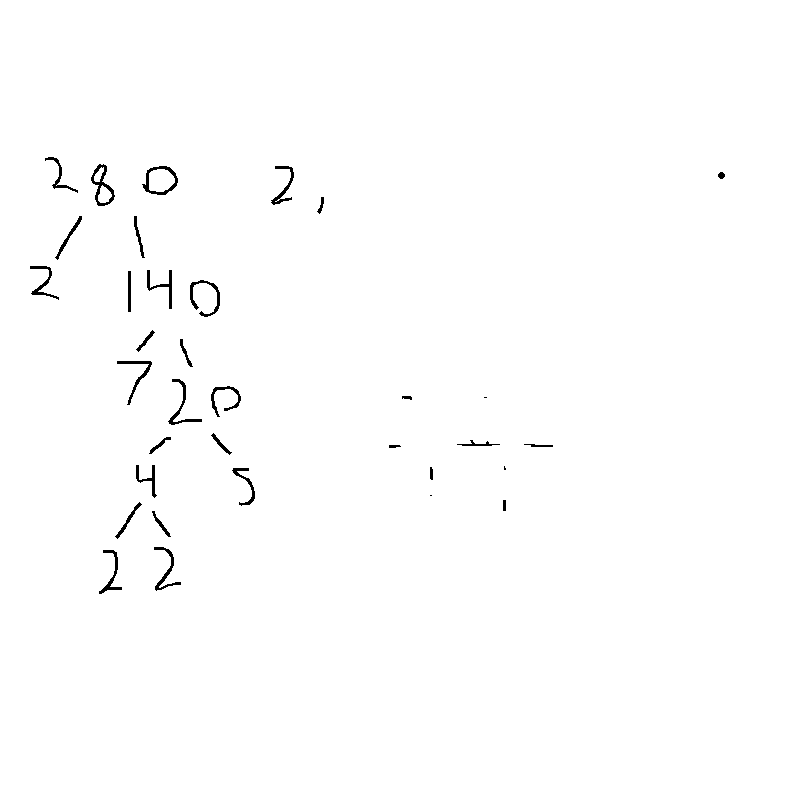 280 2,
2 140
7 20
4 5
2 2